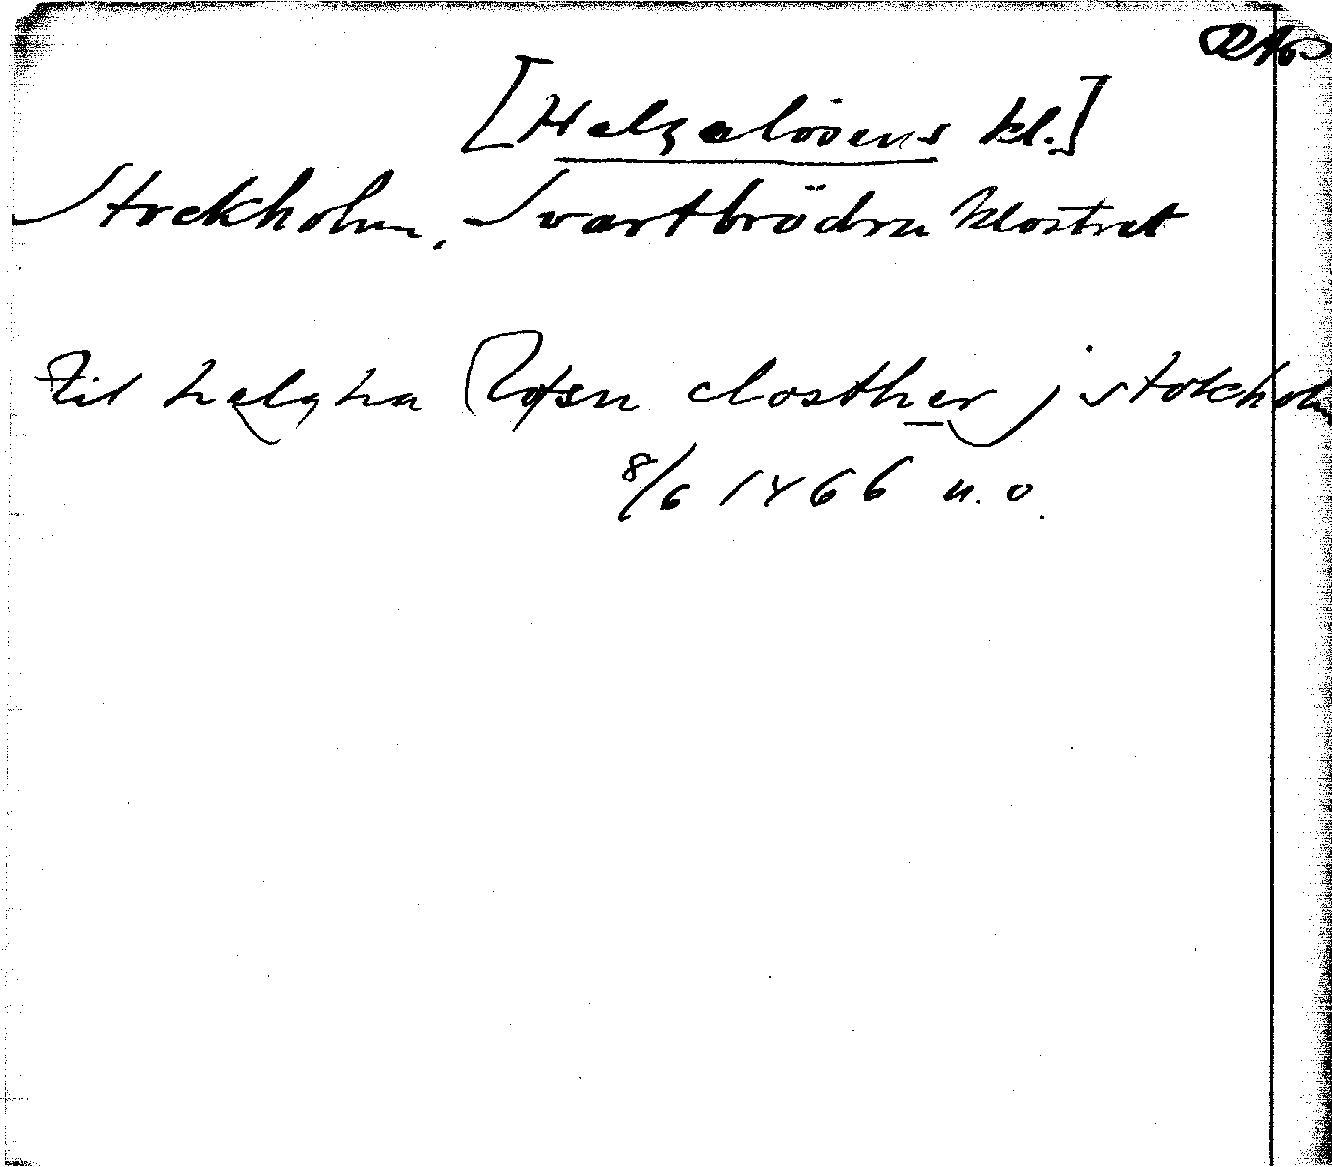 [Helgalösens kl.]
Stockholm, Svartbrödra klostret
til helgha closther j stokholm
8/6 1466 u.o.